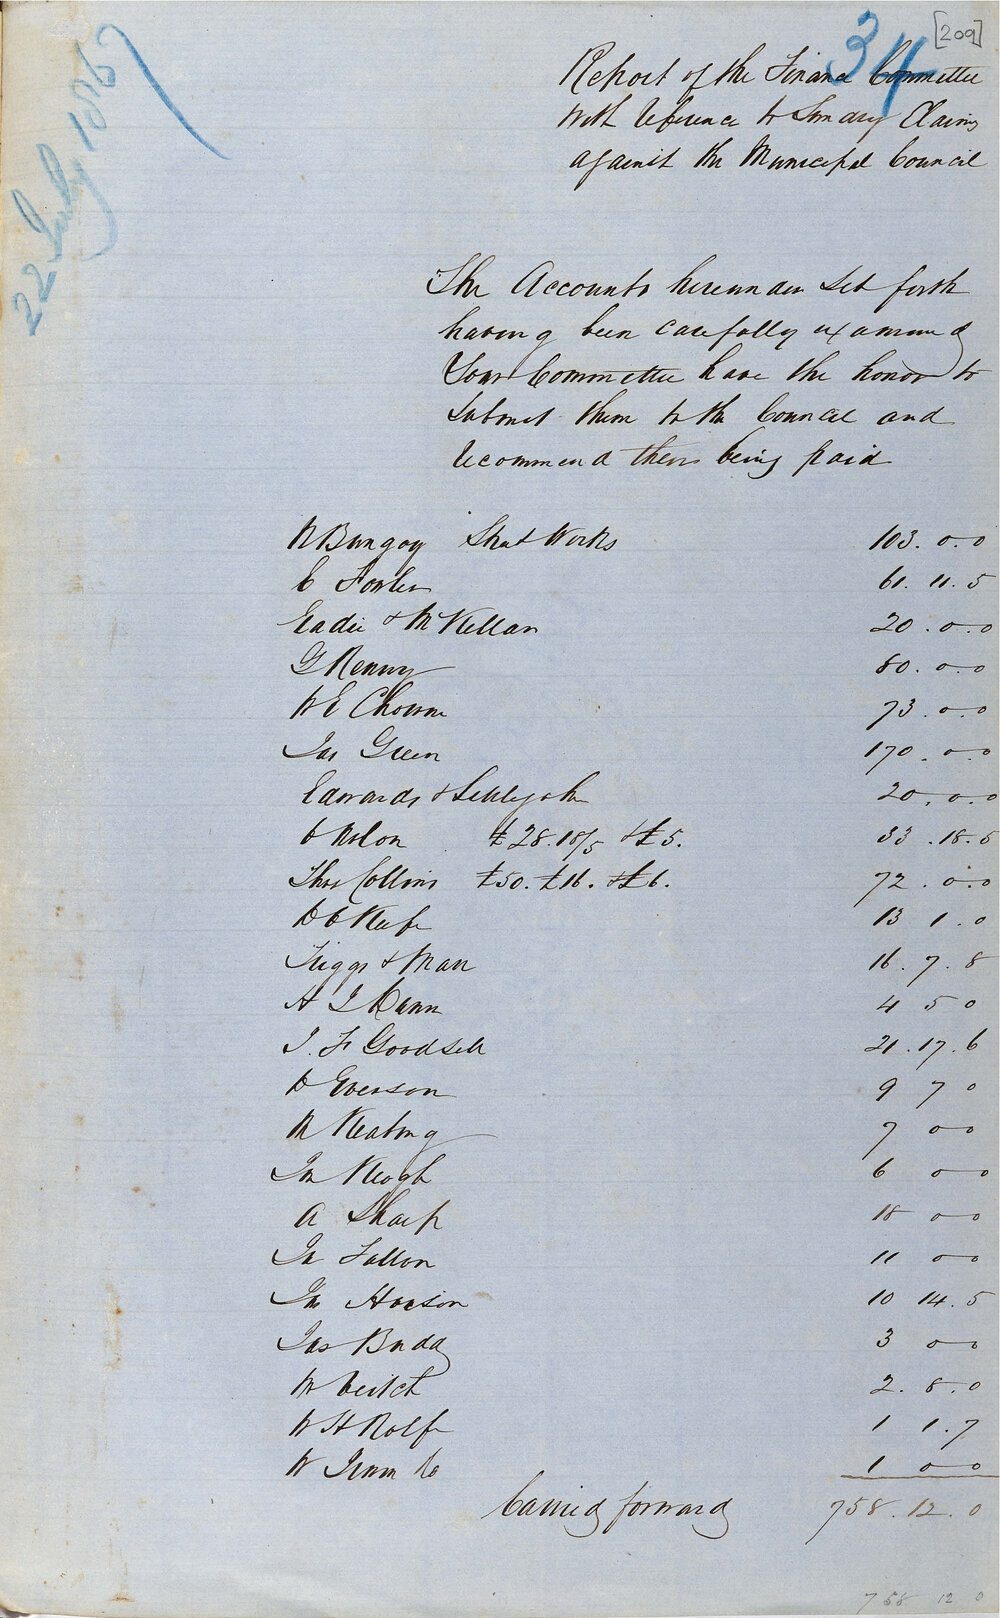 34
[209]
22 July 1867
Report of the Finance Committee
with reference to Sundry Claims
against the Municipal Council
The Accounts hereunder set forth
having been carefully examined
Your Committee have the honor to
submit them to the Council and
recommend them being paid
R Bungay Street Works 103. 0. 0
C Fowler 61. 11. 5
Eadie & McKellar 20. 0. 0
G Renny 80. 0. 0
W E Chowne 73. 0. 0
Jas Green 170. 0. 0
Edwards & 20. 0. 0
Nolan £28.18/5 & £5. 33. 18. 5
Thos Collins £50. £16. & £6. 72. 0. 0
D O'Keefe 13 1. 0
Friggs & Marr 16. 7. 8
H J 4 5 0
J. F Goodsell 21. 17. 6
D Everson 9 7 0
R Keating 7 0 0
Jn Keogh 6 0 0
A Sharp 18 0 0
Jn Fallon 11 0 0
Jas Hanson 10 14. 5
Jas Budd 3 0 0
W Veitch 2. 8. 0
W H Rolfe 1 1. 7
W 1 0 0
Carried forward 758. 12. 0
758 12 0